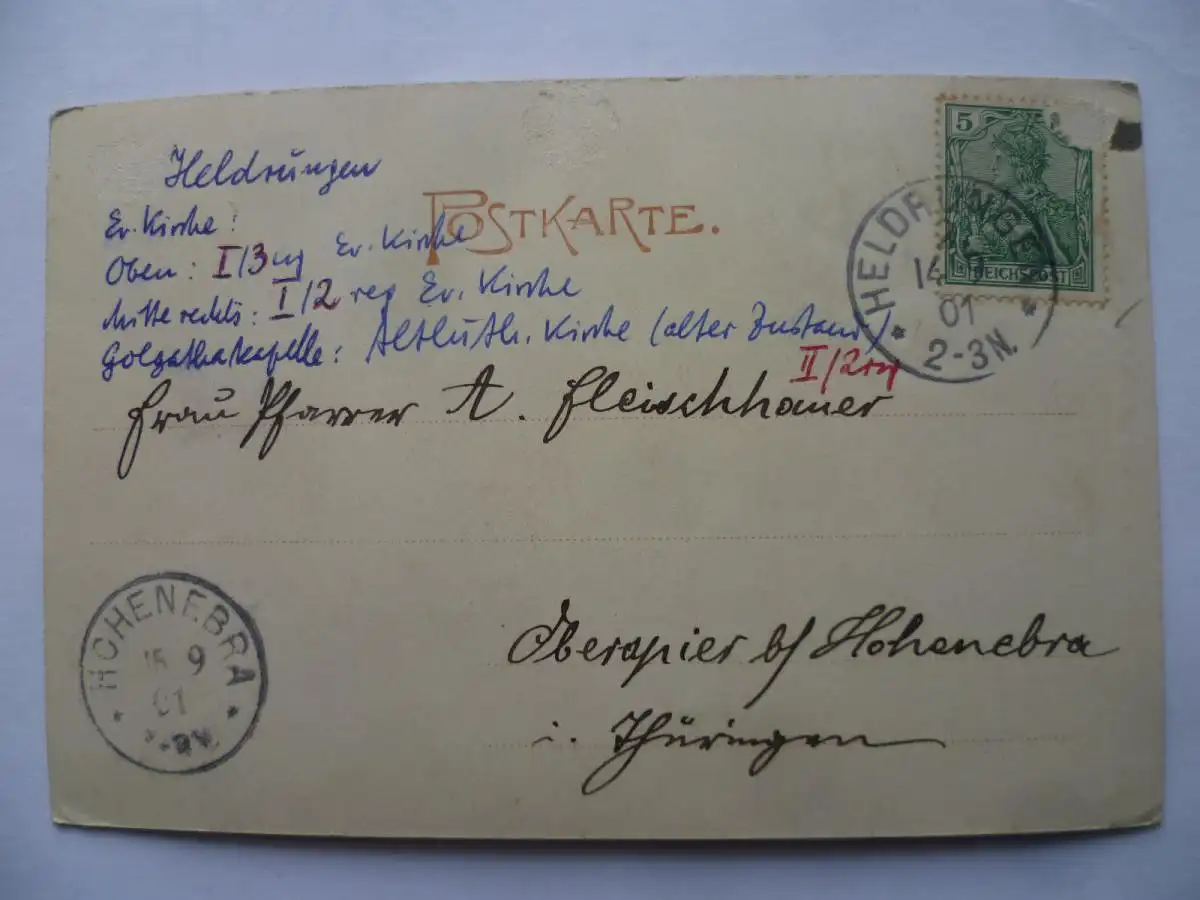 Heldrungen
POSTKARTE.
Ev. Kirche:
Oben: I/3 Ev. Kirche
Mitte rechts: I/2 reg Ev. Kirche
Golgathakapelle: Altluth. Kirche (alter Zustand)
II/2
5
REICHSPOST
HELDRUNGEN
14
01
2-3N.
Frau Pfarrer A. Fleischhauer
Oberspier b/ Hohenebra
i. Thüringen
HOHENEBRA
9
01